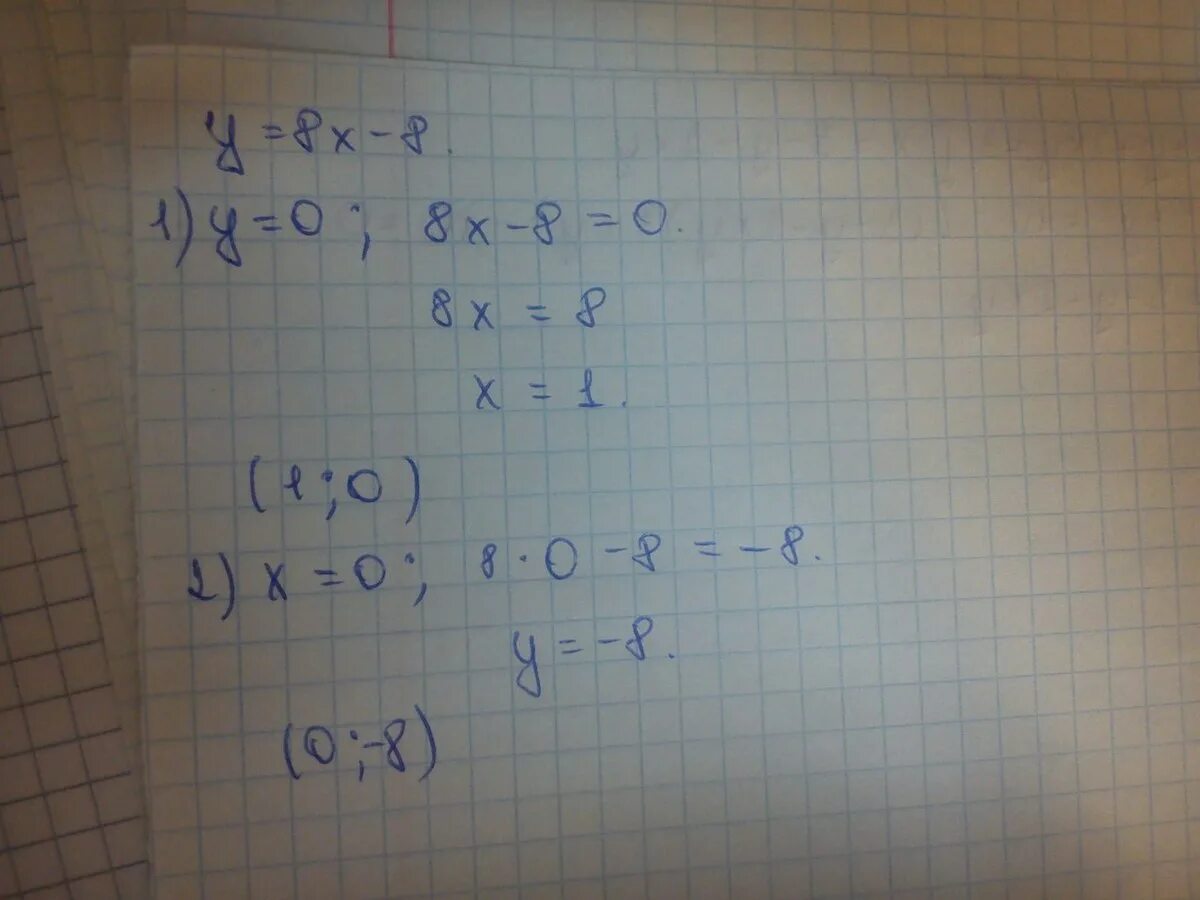 y = 8x - 8.
1) y = 0 ; 8x - 8 = 0.
8x = 8
x = 1.
(1 ; 0)
2) x = 0 ; 8 · 0 - 8 = - 8.
y = - 8.
(0 ; -8)